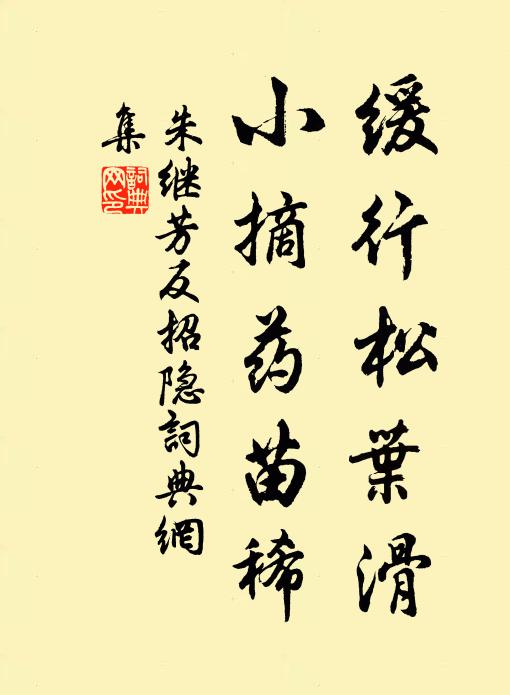 缓行松葉滑
小摘药苗稀
朱继芳反招隐詞典網
集
詞典网印